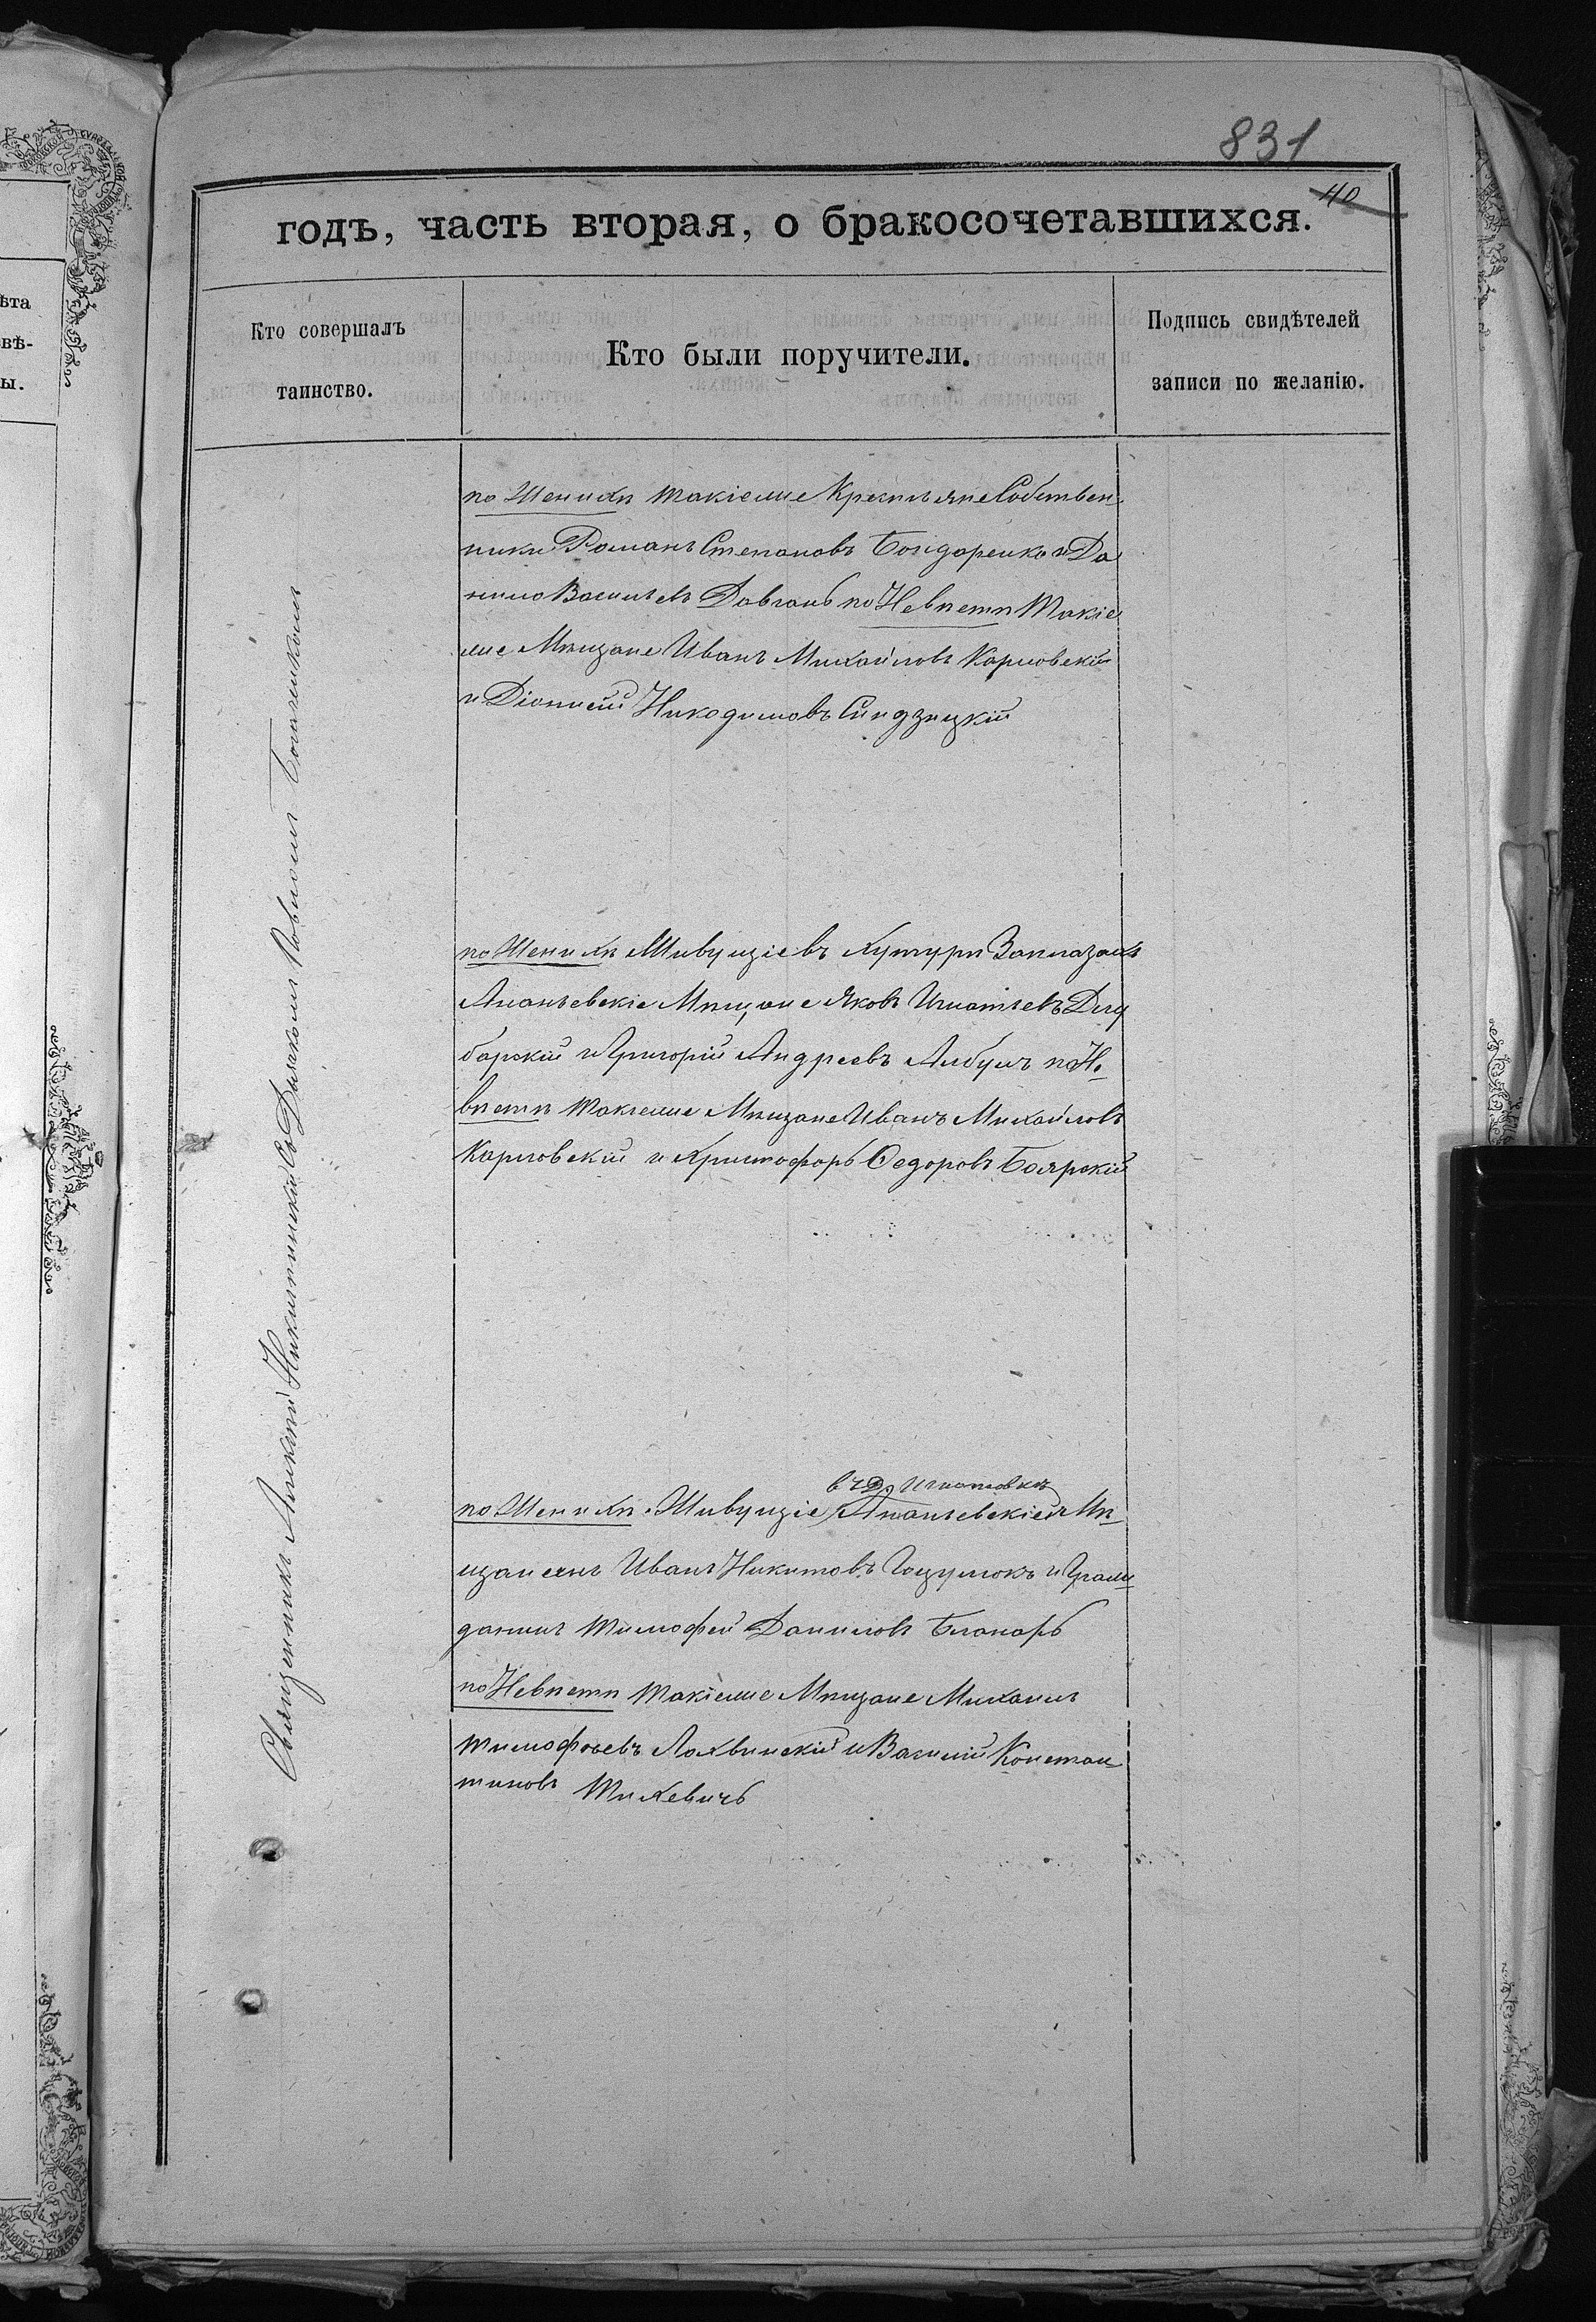 831
40
годъ, часть вторая, о бракосочетавшихся.
Кто совершалъ
таинство.
Кто были поручители.
Подпись свидѣтелей
записи по желанію.
ѣта
вѣ-
ы.
Священникъ Алексѣй Никитинскій съ Дьякомъ Павломъ
по Женихѣ Жакіеще Крестьяне Собствен-
ники Романъ Степановъ Бондаренко и Да
нило Васильевъ Довгань по Невѣстѣ Такіе
же Мѣщане Иванъ Михайловъ Карповскій
и Діонисій Никодимовъ
по Женихѣ Живущіе въ хуторѣ
Ананьевскіе Мѣщане Яковъ Игнатьевъ Дем
барскій и Григорій Андреевъ Албулъ по Не
вѣстѣ Такіеже Мѣщане Иванъ Михайловъ
Карповскій и Христофоръ Ѳедоровъ Боярскій
въ Д. Игнатовкѣ
по Женихѣ Живущіе Ананьевскіе Мѣ
щане Иванъ Никитовъ и Граж
данинъ Тимофей Даниловъ Бланарь
по Невѣстѣ Такіеже Мѣщане Михаилъ
Тимофѣевъ Лохвинскій и Василій Констан
тиновъ Тихевичъ